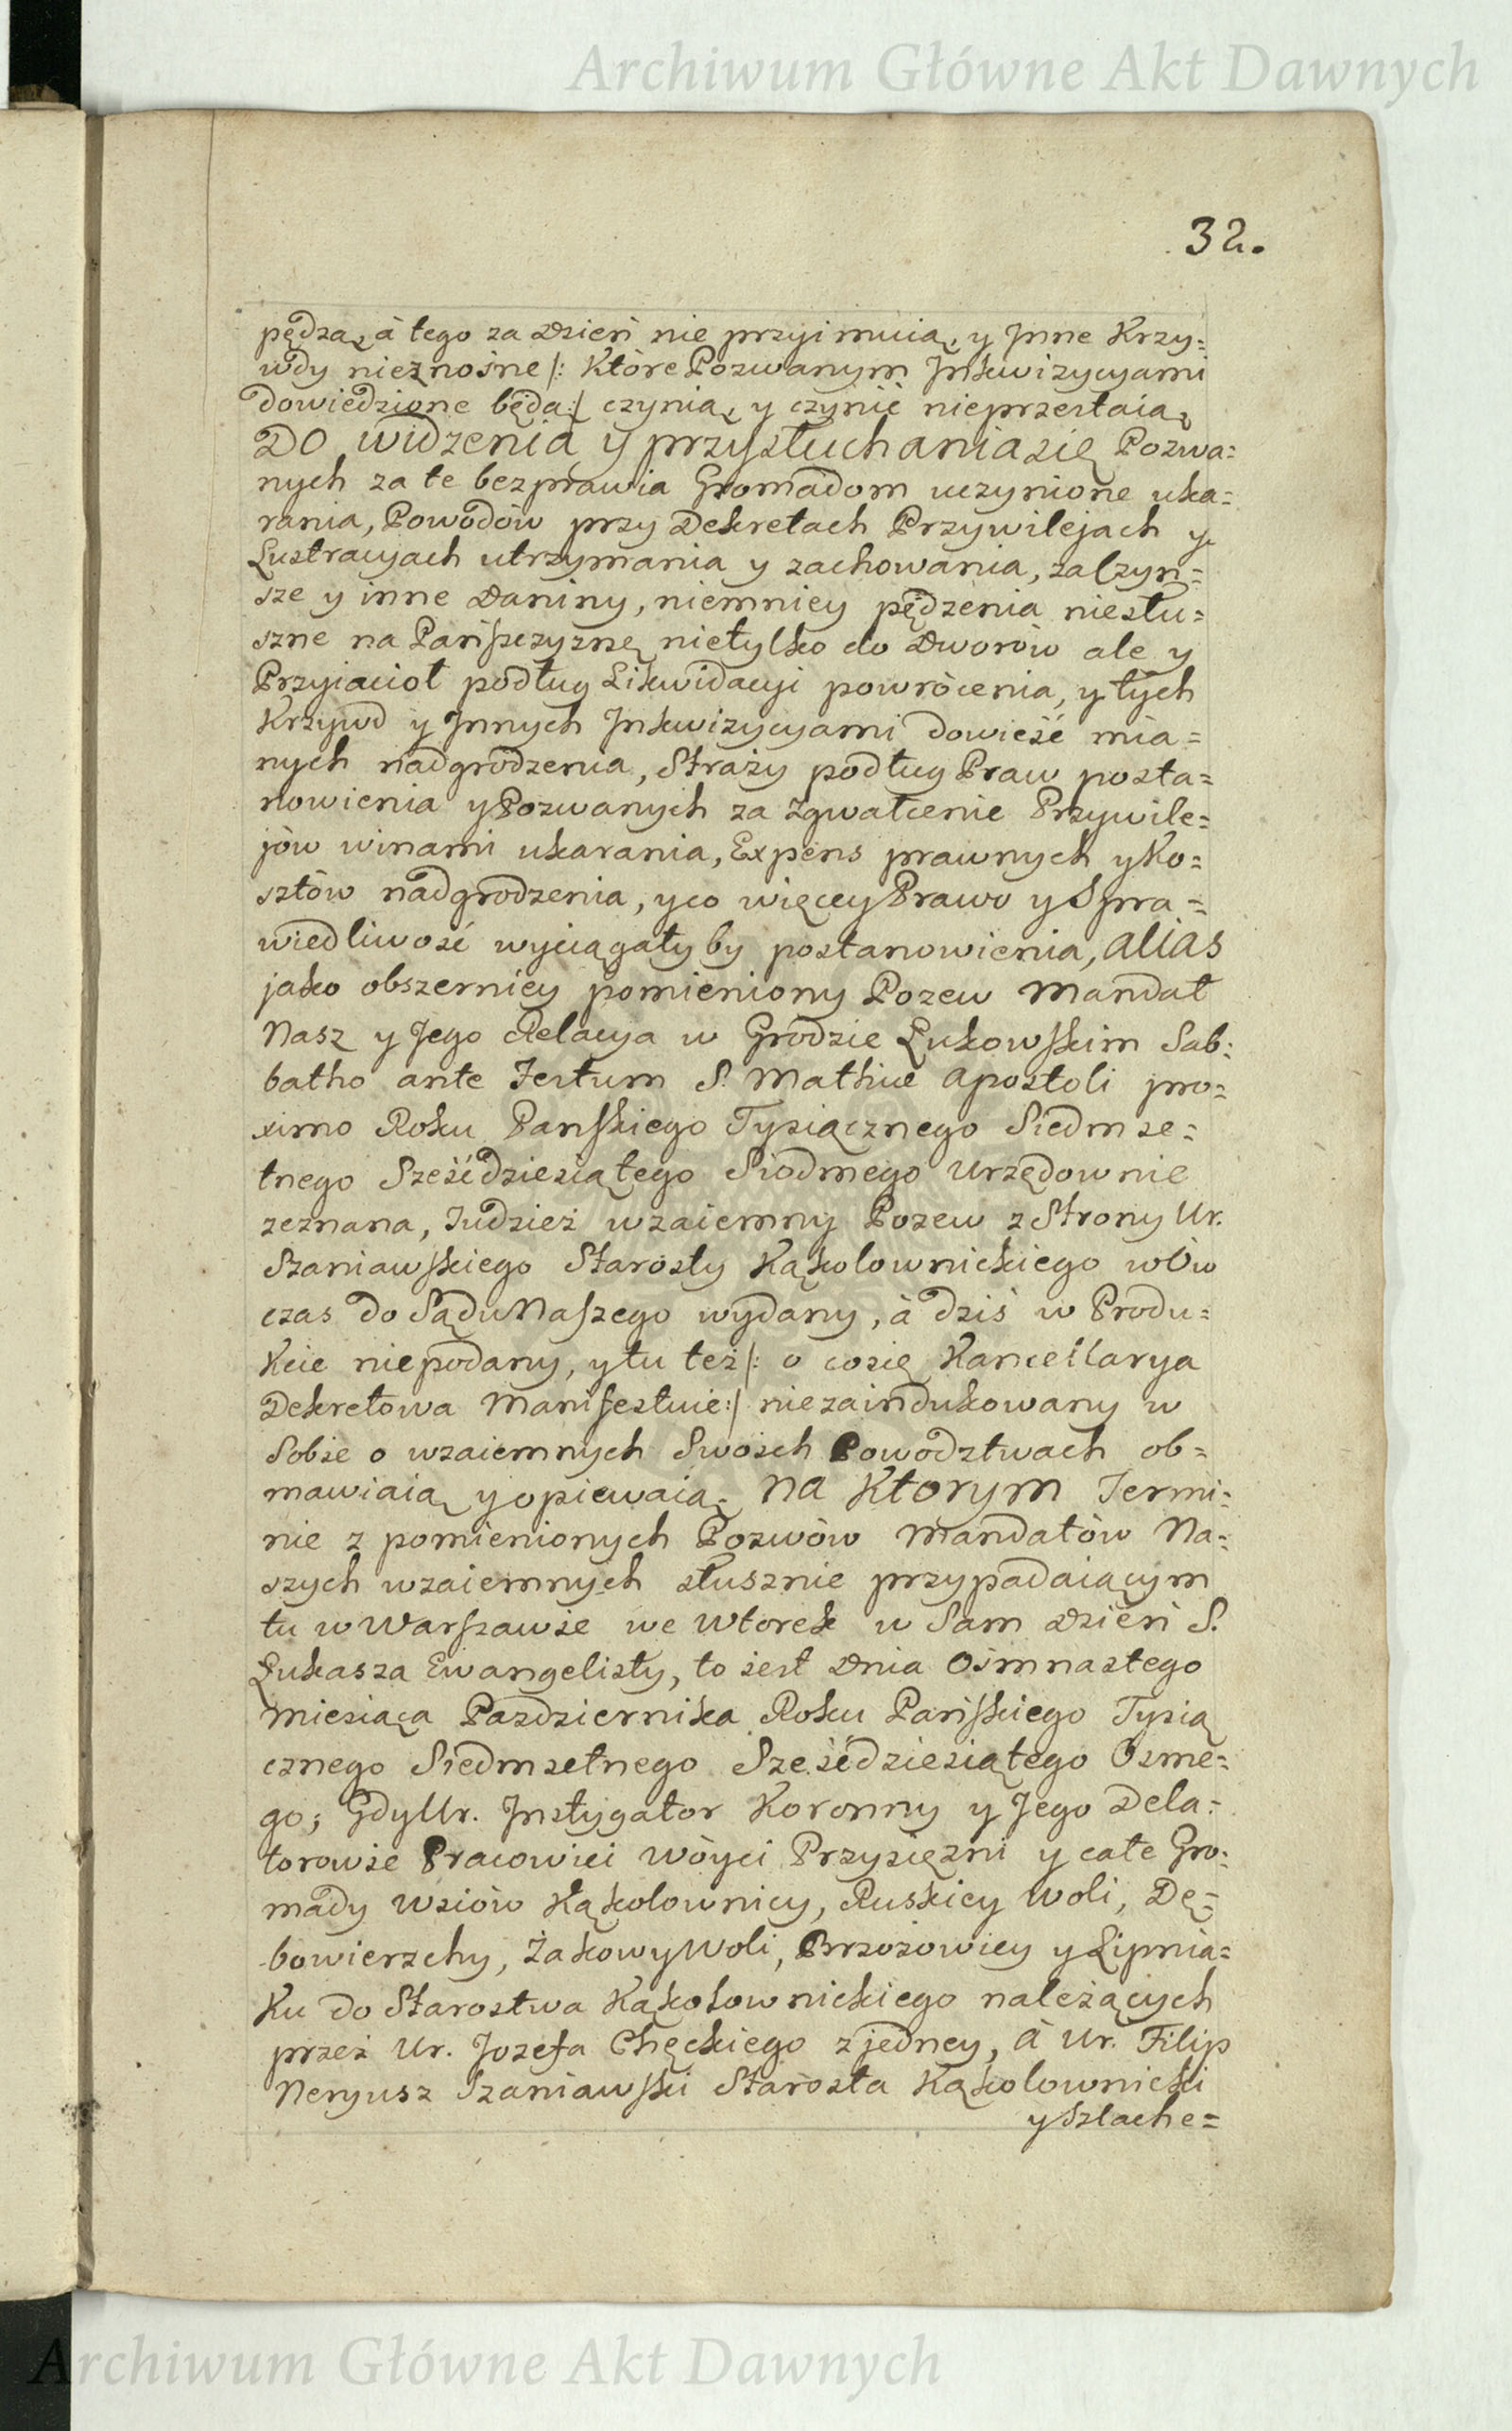 Archiwum Główne Akt Dawnych
32.
pędzą, à tego za Dzień nie przyimuią, y Jnne Krzy=
wdy nieznośne /: Które Pozwanym Jnkwizycyami
dowiedzione będą :/ czynią, y czynić nieprzestaią,
DO widzenia y przysłuchania się Pozwa=
nych za te bezprawia Gromadom uczynione uka=
rania, Powodów przy Dekretach Przywilejach y
Lustracyach utrzymania y zachowania, za Czyn=
sze y inne Daniny, niemniey pędzenia niesłu=
szne na Pańszczyznę nietylko do Dworów ale y
Przyiacioł podług Likwidacyi powrócenia, y tych
Krzywd y Jnnych Jnkwizycyami dowieść mia=
nych nadgrodzenia, Straży podług Praw posta=
nowienia y Pozwanych za zgwałcenie Przywile=
jów winami ukarania, Expens prawnych y Ko=
sztów nadgrodzenia, y co więcey Prawo y Spra=
wiedliwość wyciągały by postanowienia, alias
jako obszerniey pomieniony Pozew Mandat
Nasz y Jego Relacya w Grodzie Łukowskim Sab=
batho ante Festum S. Mathiæ Apostoli pro=
ximo Roku Panskiego Tysiącznego Siedmse=
tnego Sześćdziesiątego Siodmego Urzędownie
zeznana, Tudzież wzaiemny Pozew z Strony Ur.
Szaniawskiego Starosty Kąkolownickiego w ów
czas do Sądu Naszego wydany, à dziś w Produ=
kcie niepodany, y tu też /: o co się Kancellarya
Dekretowa Manifestuie :/ niezaindukowany w
Sobie o wzaiemnych Swoich Powodztwach ob=
mawiaią y opiewaią. Na Ktorym Termi=
nie z pomienionych Pozwów Mandatów Na=
szych wzaiemnych słusznie przypadaiącym
tu w Warszawie we Wtorek w Sam Dzień S.
Łukasza Ewangelisty, to iest Dnia Osmnastego
Miesiąca Pazdziernika Roku Pańskiego Tysią
cznego Siedmsetnego Sześćdziesiątego Osme=
go; Gdy Ur. Jnstygator Koronny y Jego Dela=
torowie Pracowici Wóyci Przysięzni y całe Gro=
mady Wsiów Kąkolownicy, Ruskiey Woli, Dę=
bowierzchy, Żakowy Woli, Brzozowicy y Lipnia=
ku do Starostwa Kąkolownickiego należących
przez Ur. Jozefa Chęckiego z jedney, à Ur. Filip
Neryusz Szaniawski Starosta Kąkolownicki
y Szlache=
Archiwum Główne Akt Dawnych